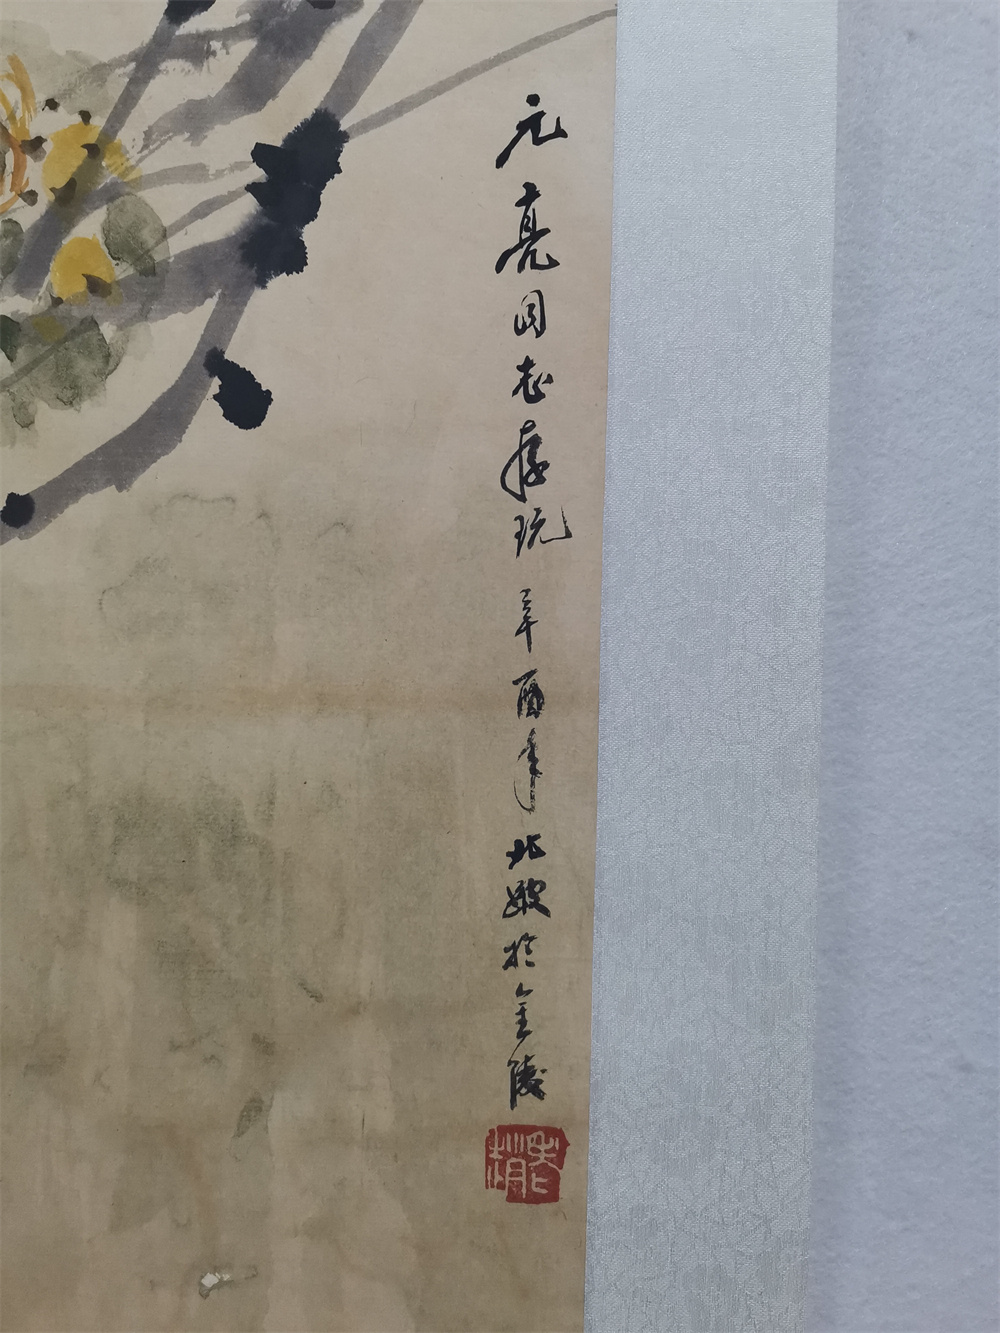 元亮同志存玩 辛酉年北於金陵